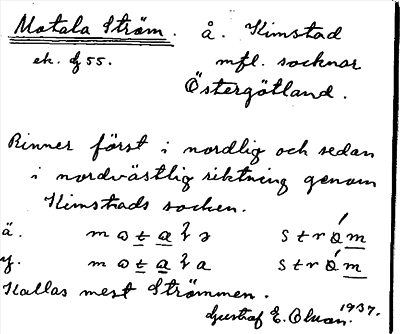 Motala Ström. å. Kimstad
ek. 55. mfl. socknar
Östergötland.
Rinner först i nordlig och sedan
i nordvästlig riktning genom
Kimstads socken.
ä. m ɷ t a ɀ ə s t r ɷ́ m
y. m ɷ t a ɀ a s t r ɷ́ m
Kallas mest Strömmen.
Gustaf E. Olsson. 1937.